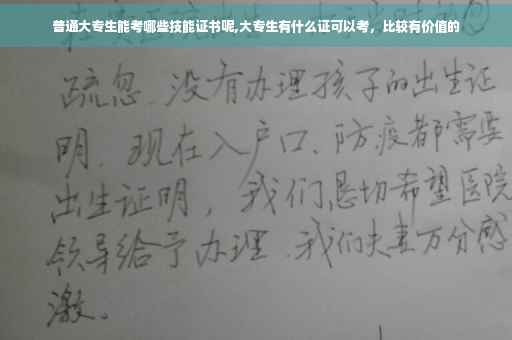 普通大专生能考哪些技能证书呢,大专生有什么证可以考，比较有价值的
疏忽、没有办理孩子的出生证
明、现在入户口、防疫都需要
出生证明，我们恳切希望医院
领导给予办理、我们夫妻万分感
激。